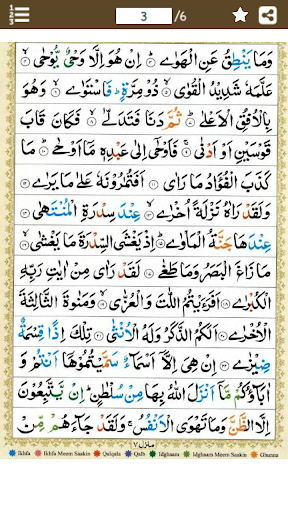 3 /6
وَمَا يَنۡطِقُ عَنِ الۡهَوٰى ؕ اِنۡ هُوَ اِلَّا وَحۡىٌ يُّوۡحٰى ۙ
عَلَّمَهٗ شَدِيۡدُ الۡقُوٰى ۙ ذُوۡ مِرَّةٍ ؕ فَاسۡتَوٰى ۙ وَهُوَ
بِالۡاُفُقِ الۡاَعۡلٰى ؕ ثُمَّ دَنَا فَتَدَلّٰى ۙ فَكَانَ قَابَ
قَوۡسَيۡنِ اَوۡ اَدۡنٰى ۚ فَاَوۡحٰۤى اِلٰى عَبۡدِهٖ مَاۤ اَوۡحٰى ؕ مَا
كَذَبَ الۡفُؤَادُ مَا رَاٰى اَفَتُمٰرُوۡنَهٗ عَلٰى مَا يَرٰى
وَلَقَدۡ رَاٰهُ نَزۡلَةً اُخۡرٰى ۙ عِنۡدَ سِدۡرَةِ الۡمُنۡتَهٰى
عِنۡدَهَا جَنَّةُ الۡمَاۡوٰى ؕ اِذۡ يَغۡشَى السِّدۡرَةَ مَا يَغۡشٰى ۙ
مَا زَاغَ الۡبَصَرُ وَمَا طَغٰى لَقَدۡ رَاٰى مِنۡ اٰيٰتِ رَبِّهِ
الۡكُبۡرٰى اَفَرَءَيۡتُمُ اللّٰتَ وَالۡعُزّٰى ۙ وَمَنٰوةَ الثَّالِثَةَ
الۡاُخۡرٰى اَلَكُمُ الذَّكَرُ وَلَهُ الۡاُنۡثٰى تِلۡكَ اِذًا قِسۡمَةٌ
ضِيۡزٰى اِنۡ هِىَ اِلَّاۤ اَسۡمَآءٌ سَمَّيۡتُمُوۡهَاۤ اَنۡتُمۡ وَ
اٰبَآؤُكُمۡ مَّاۤ اَنۡزَلَ اللّٰهُ بِهَا مِنۡ سُلۡطٰنٍ ؕ اِنۡ يَّتَّبِعُوۡنَ
اِلَّا الظَّنَّ وَمَا تَهۡوَى الۡاَنۡفُسُ ۚ وَلَقَدۡ جَآءَهُمۡ مِّنۡ
منزل ۷
Ikhfa Ikhfa Meem Saakin Qalqala Qalb Idghaam Idghaam Meem Saakin Ghunna